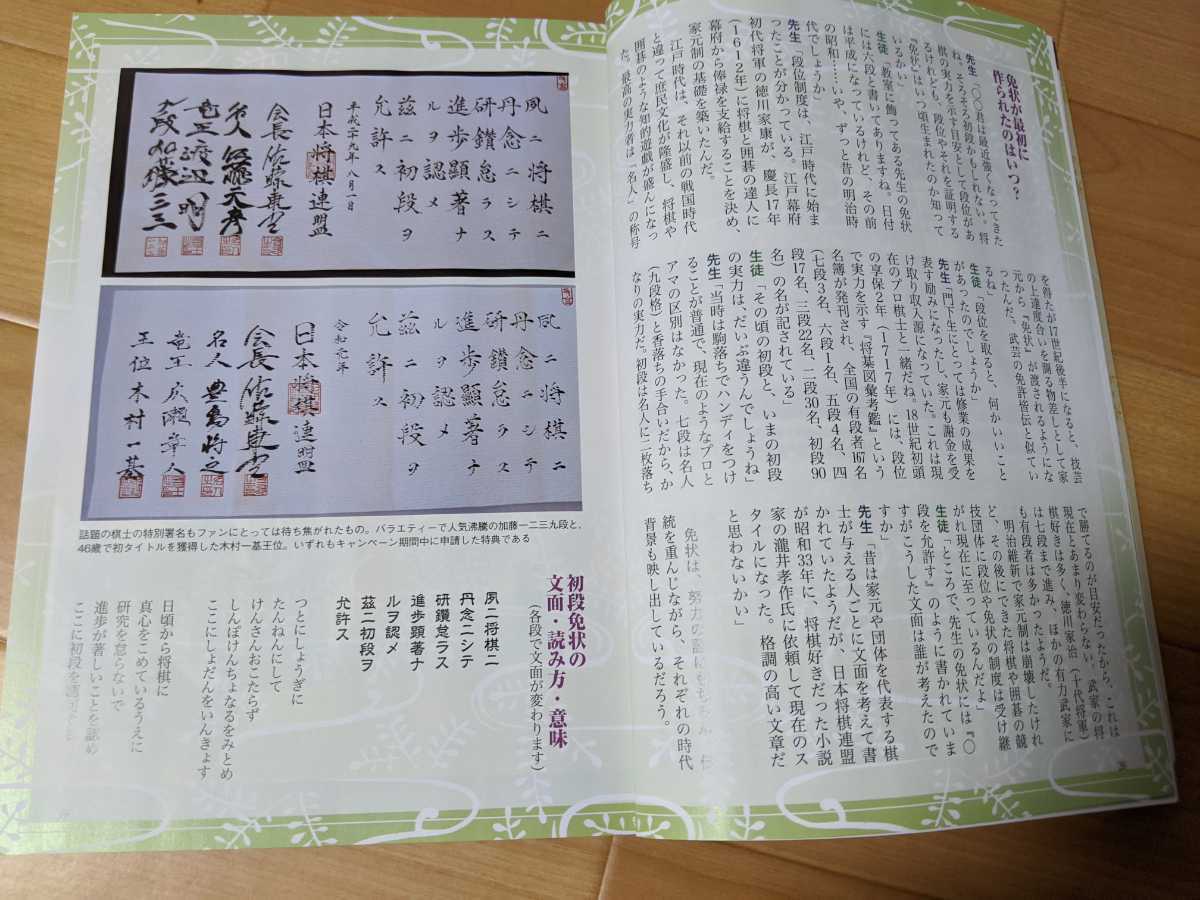 免状が最初に
作られたのはいつ?
先生「〇〇君は最近強くなってきた
ね。そろそろ初段かもしれない。将
棋の実力を示す目安として段位があ
るけれども、段位やそれを証明する
『免状』はいつ頃生まれたのか知って
いるかい」
生徒「教室に飾ってある先生の免状
には六段と書いてありますね。日付
は平成になっているけれど、その前
の昭和……いや、ずっと昔の明治時
代でしょうか」
先生「段位制度は、江戸時代に始ま
ったことが分かっている。江戸幕府
初代将軍の徳川家康が、慶長17年
(1612年)に将棋と囲碁の達人に
幕府から俸禄を支給することを決め、
家元制の基礎を築いたんだ。
江戸時代は、それ以前の戦国時代
と違って庶民文化が隆盛し、将棋や
囲碁のような知的遊戯が盛んになっ
た。最高の実力者は「名人」の称号
を得たが17世紀後半になると、技芸
の上達度合いを測る物差しとして家
元から『免状』が渡されるようにな
ったんだ。武芸の免許皆伝と似てい
るね」
生徒「段位を取ると、何かいいこと
があったのでしょうか」
先生「門下生にとっては修業の成果を
表す励みになったし、家元も謝金を受
け取り収入源になっていた。これは現
在のプロ棋士と一緒だね。18世紀初頭
の享保2年(1717年)には、段位
で実力を示す『将棊図彙考鑑』という
名簿が発刊され、全国の有段者167名
(七段3名、六段1名、五段4名、四
段17名、三段22名、二段30名、初段90
名)の名が記されている」
生徒「その頃の初段と、いまの初段
の実力は、だいぶ違うんでしょうね」
先生「当時は駒落ちでハンディをつけ
ることが普通で、現在のようなプロと
アマの区別はなかった。七段は名人
(九段格)と香落ちの手合いだから、か
なりの実力だ。初段は名人に二枚落ち
で勝てるのが目安だったから、これは
現在とあまり変わらない。武家の将
棋好きは多く、徳川家治(十代将軍)
は七段まで進み、ほかの有力武家に
も有段者は多かったようだ。
明治維新で家元制は崩壊したけれ
ど、その後にできた将棋や囲碁の競
技団体に段位や免状の制度は受け継
がれ現在に至っているんだよ」
生徒「ところで、先生の免状には『〇
段を允許す』のように書かれていま
すがこうした文面は誰が考えたので
すか」
先生「昔は家元や団体を代表する棋
士が与える人ごとに文面を考えて書
かれていたようだが、日本将棋連盟
が昭和33年に、将棋好きだった小説
家の瀧井孝作氏に依頼して現在のス
タイルになった。格調の高い文章だ
と思わないかい」
免状は、努力の証にもちろん、伝
統を重んじながら、それぞれの時代
背景も映し出しているだろう。
夙ニ将棋ニ
丹念ニシテ
研鑽怠ラス
進歩顕著ナ
ルヲ認メ
茲ニ初段ヲ
允許ス
平成二十九年八月一日
日本将棋連盟
会長 佐藤康光
名人 佐藤天彦
竜王 渡辺明
九段 加藤一二三
夙ニ将棋ニ
丹念ニシテ
研鑽怠ラス
進歩顕著ナ
ルヲ認メ
茲ニ初段ヲ
允許ス
令和元年
日本将棋連盟
会長 佐藤康光
名人 豊島将之
竜王 広瀬章人
王位 木村一基
話題の棋士の特別署名もファンにとっては待ち焦がれたもの。バラエティーで人気沸騰の加藤一二三九段と、
46歳で初タイトルを獲得した木村一基王位。いずれもキャンペーン期間中に申請した特典である
初段免状の
文面・読み方・意味
(各段で文面が変わります)
夙ニ将棋ニ
丹念ニシテ
研鑽怠ラス
進歩顕著ナ
ルヲ認メ
茲ニ初段ヲ
允許ス
つとにしょうぎに
たんねんにして
けんさんおこたらず
しんぽけんちょなるをみとめ
ここにしょだんをいんきょす
日頃から将棋に
真心をこめているうえに
研究を怠らないで
進歩が著しいことを認め
ここに初段を